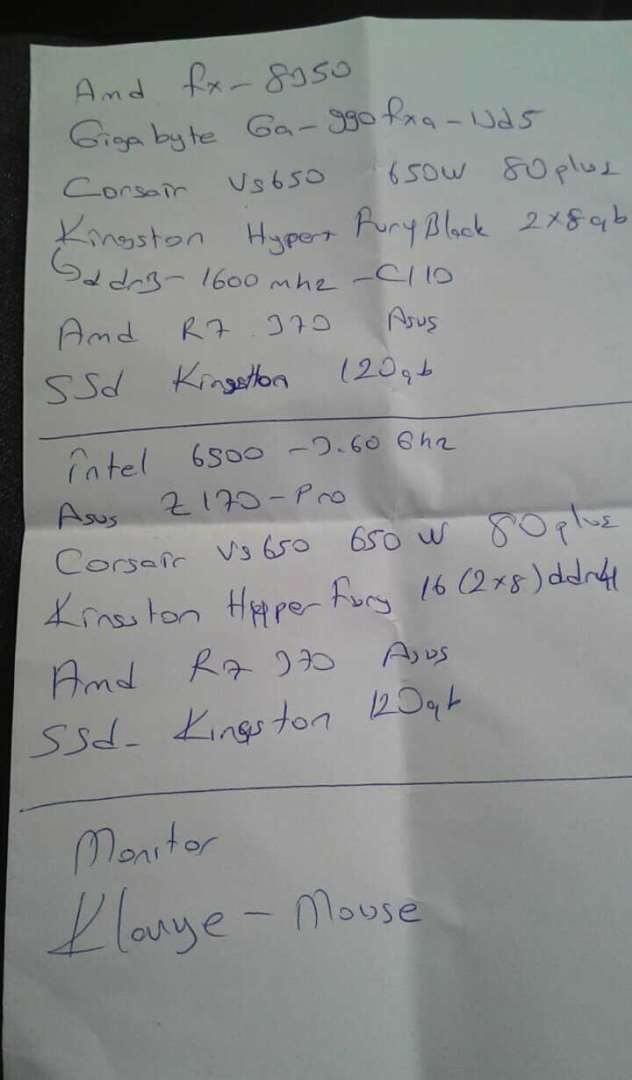 Amd fx-8350
Gigabyte Ga-990fxa-Ud5
Corsair Vs650 650W 80plus
Kingston Hyperx Fury Black 2x8gb
ddr3-1600mhz-Cl10
Amd R7 370 Asus
SSd Kingston 120gb
intel 6500 -3.60 Ghz
Asus Z170-Pro
Corsair Vs650 650W 80plus
Kingston Hyper Fury 16(2x8)ddr4
Amd R7 370 Asus
SSd- Kingston 120gb
Monitor
Klavye-Mouse